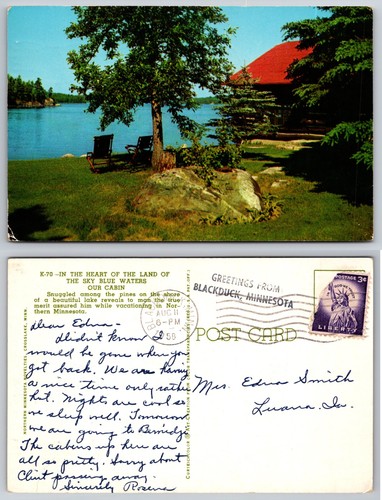 K-70 -IN THE HEART OF THE LAND OF
THE SKY BLUE WATERS
OUR CABIN
Snuggled among the pines on the shore
of a beautiful lake reveals to man the true
merit assured him while vacationing in Nor-
thern Minnesota.
Dear Edna -
Didn't know I
would be gone when you
got back. We are having
a nice time only rather
hot. Nights are cool so
we sleep well. Tomorrow
we are going to Bemidji.
The cabins up here are
all so pretty. Sorry about
Clint passing away.
Sincerely Rosena
AUG 11
6-PM
GREETINGS FROM
BLACKDUCK, MINNESOTA
POST CARD
POSTAGE 3¢
LIBERTY
Mrs. Edna Smith
Luana, Ia.